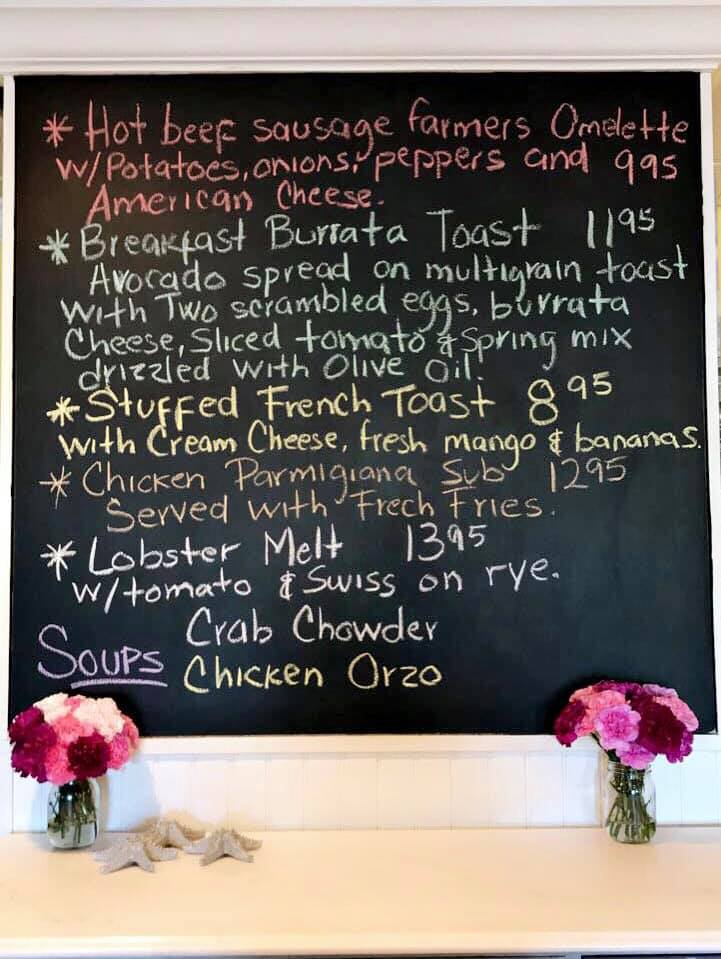 * Hot beef sausage farmers Omelette
w/Potatoes, onions, peppers and 995
American Cheese.
* Breakfast Burrata Toast 1195
Avocado spread on multigrain toast
with Two scrambled eggs, burrata
Cheese, Sliced tomato & Spring mix
drizzled with Olive Oil.
* Stuffed French Toast 895
with Cream Cheese, fresh mango & bananas.
* Chicken Parmigiana Sub 1295
Served with Frech Fries.
* Lobster Melt 1395
w/tomato & Swiss on rye.
Soups Crab Chowder
Chicken Orzo